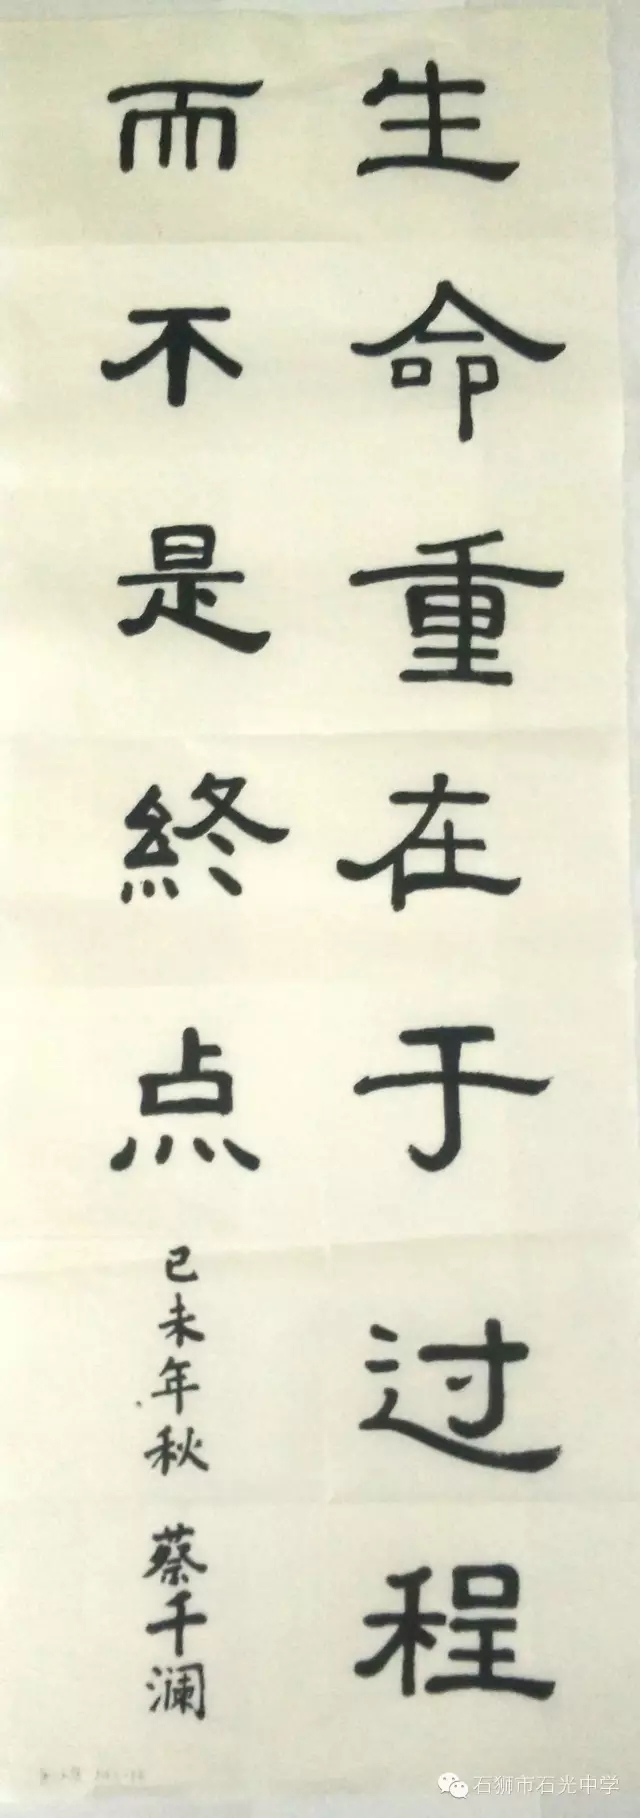 生命重在于过程
而不是終点
己未年秋 蔡千澜
石狮市石光中学